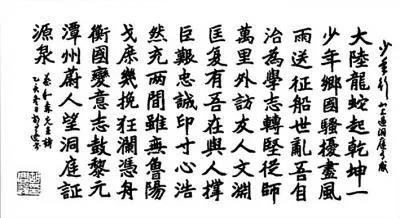 少年行 北上過洞庭有感
大陸龍蛇起乾坤一
少年鄉國騷擾盡風
雨送征船世亂吾自
治為學志轉堅從師
萬里外訪友人文淵
匡復有吾在與人撐
巨艱忠誠印寸心浩
然充兩間雖無魯陽
戈庶幾挽狂瀾憑舟
衡國變意志鼓黎元
潭州蔚人望洞庭証
源泉
蔡和森先生詩
乙亥冬日